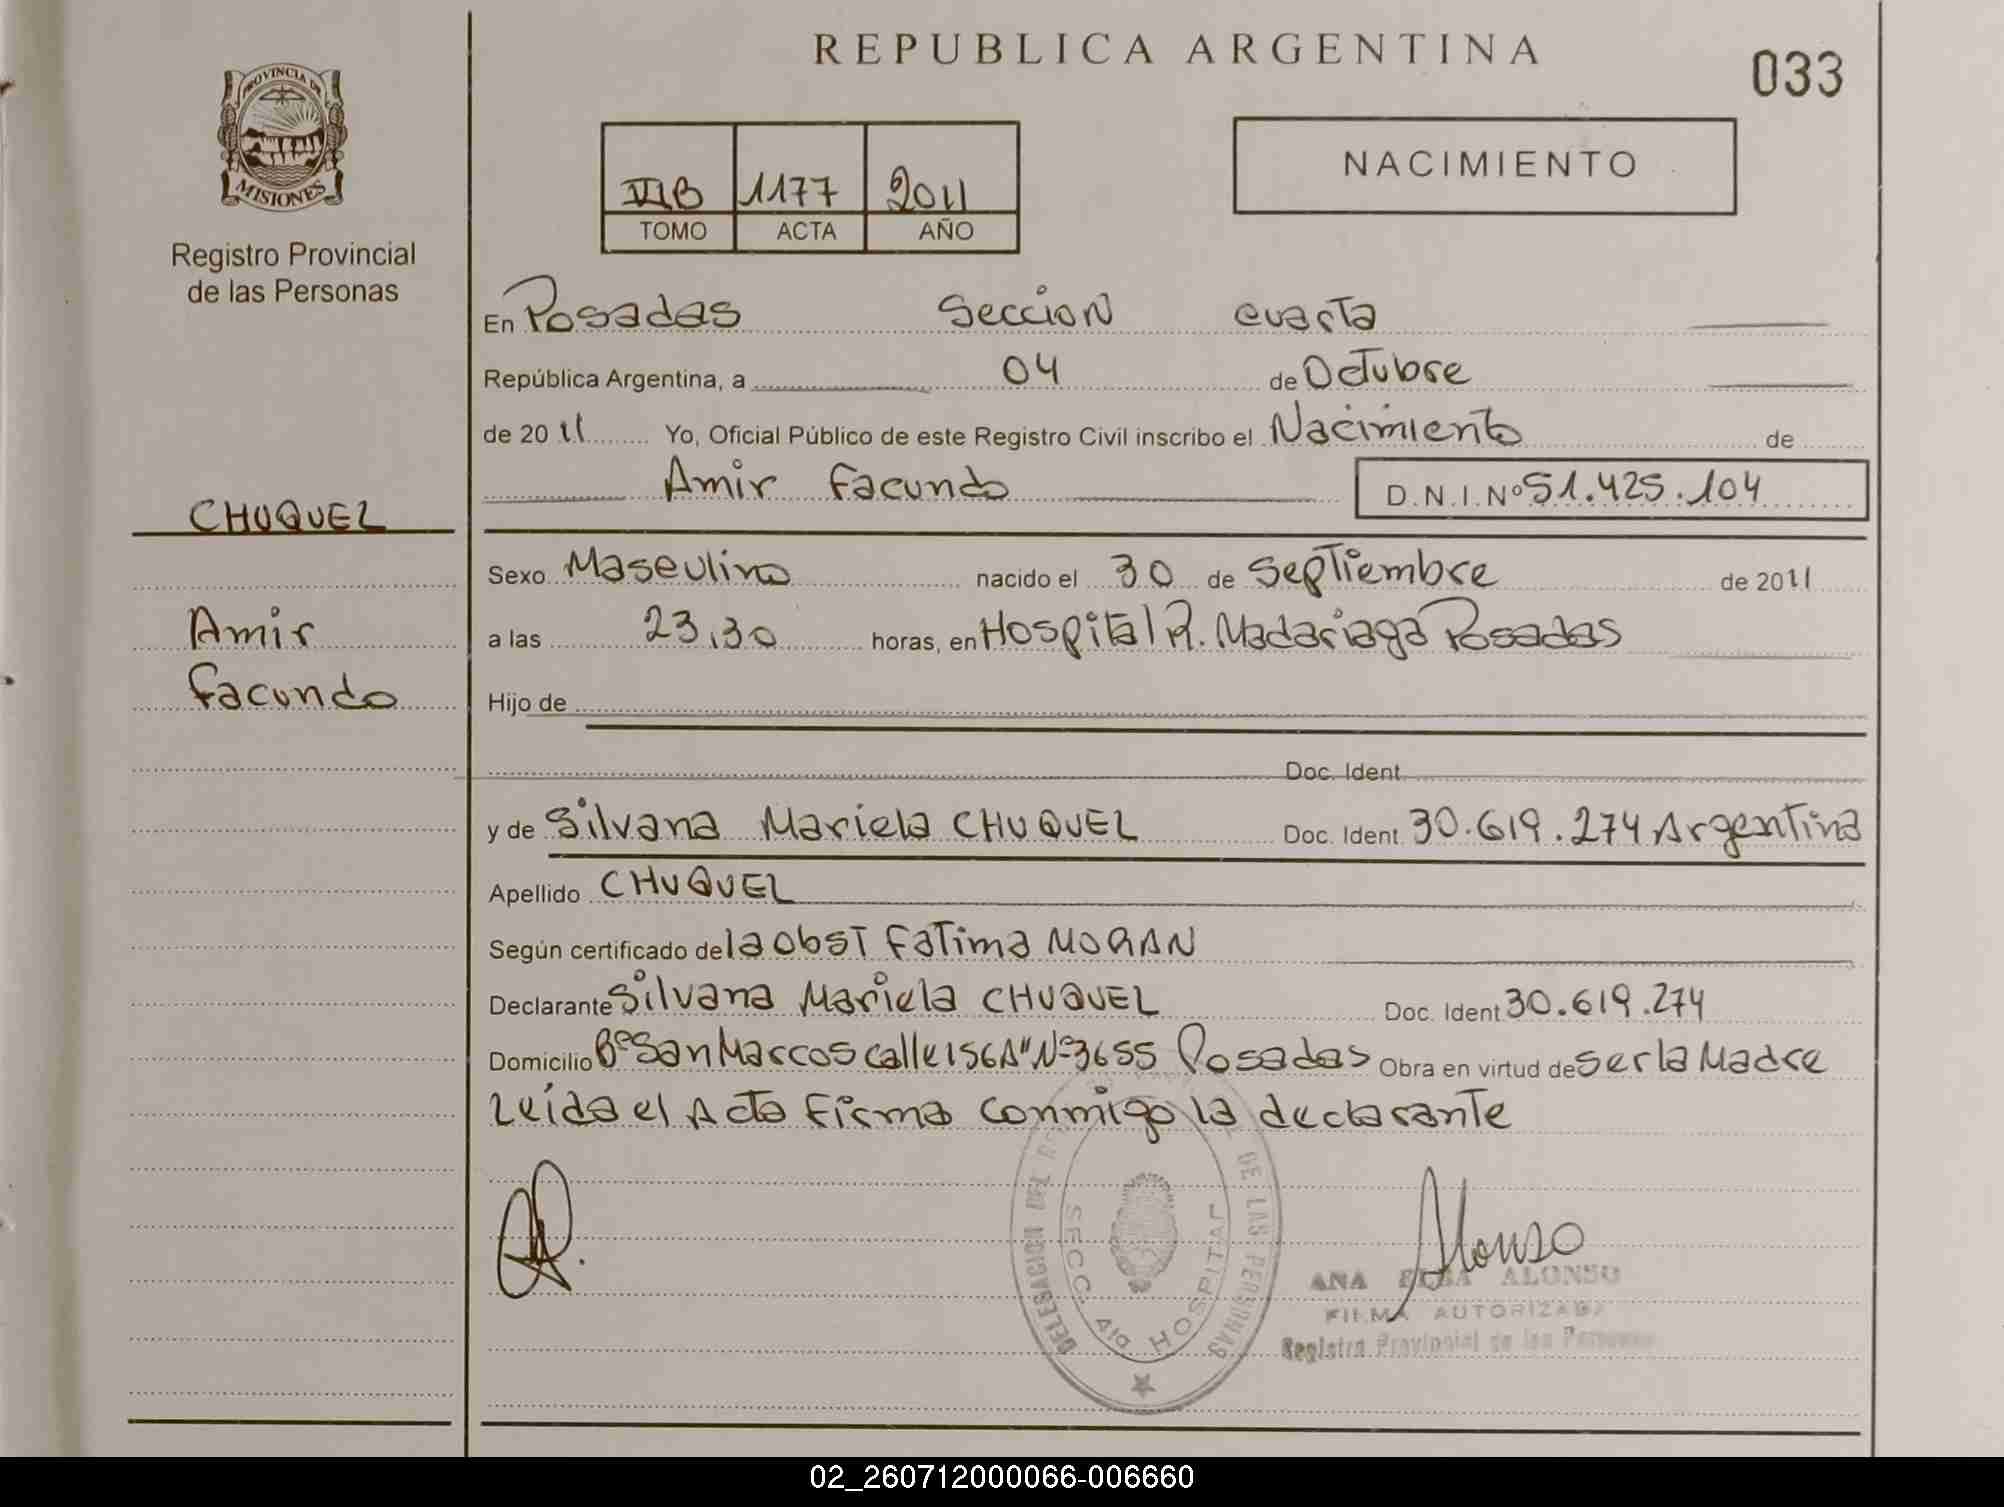 REPUBLICA ARGENTINA
033
PROVINCIA DE
MISIONES
Registro Provincial
de las Personas
VIB 1177 2011
TOMO ACTA AÑO
NACIMIENTO
En Posadas Seccion cuarta
República Argentina, a 04 de Octubre
de 2011 Yo, Oficial Público de este Registro Civil inscribo el Nacimiento de
Amir Facundo D.N.I.Nº 51.425.104
CHUQUEL
Amir
Facundo
Sexo Masculino nacido el 30 de Septiembre de 2011
a las 23,30 horas, en Hospital R. Madariaga Posadas
Hijo de
Doc. Ident.
y de Silvana Mariela CHUQUEL Doc. Ident. 30.619.274 Argentina
Apellido CHUQUEL
Según certificado de la Obst Fatima MORAN
Declarante Silvana Mariela CHUQUEL Doc. Ident 30.619.274
Domicilio Bº San Marcos calle 156A" Nº 3655 Posadas Obra en virtud de ser la Madre
Leida el Acta Firma conmigo la declarante
DELEGACION DEL DE LAS PERSONAS
SECC. 4ta HOSPITAL
Alonso
ANA ELBA ALONSO
FIRMA AUTORIZADA
Registro Provincial de las Personas
02_260712000066-006660